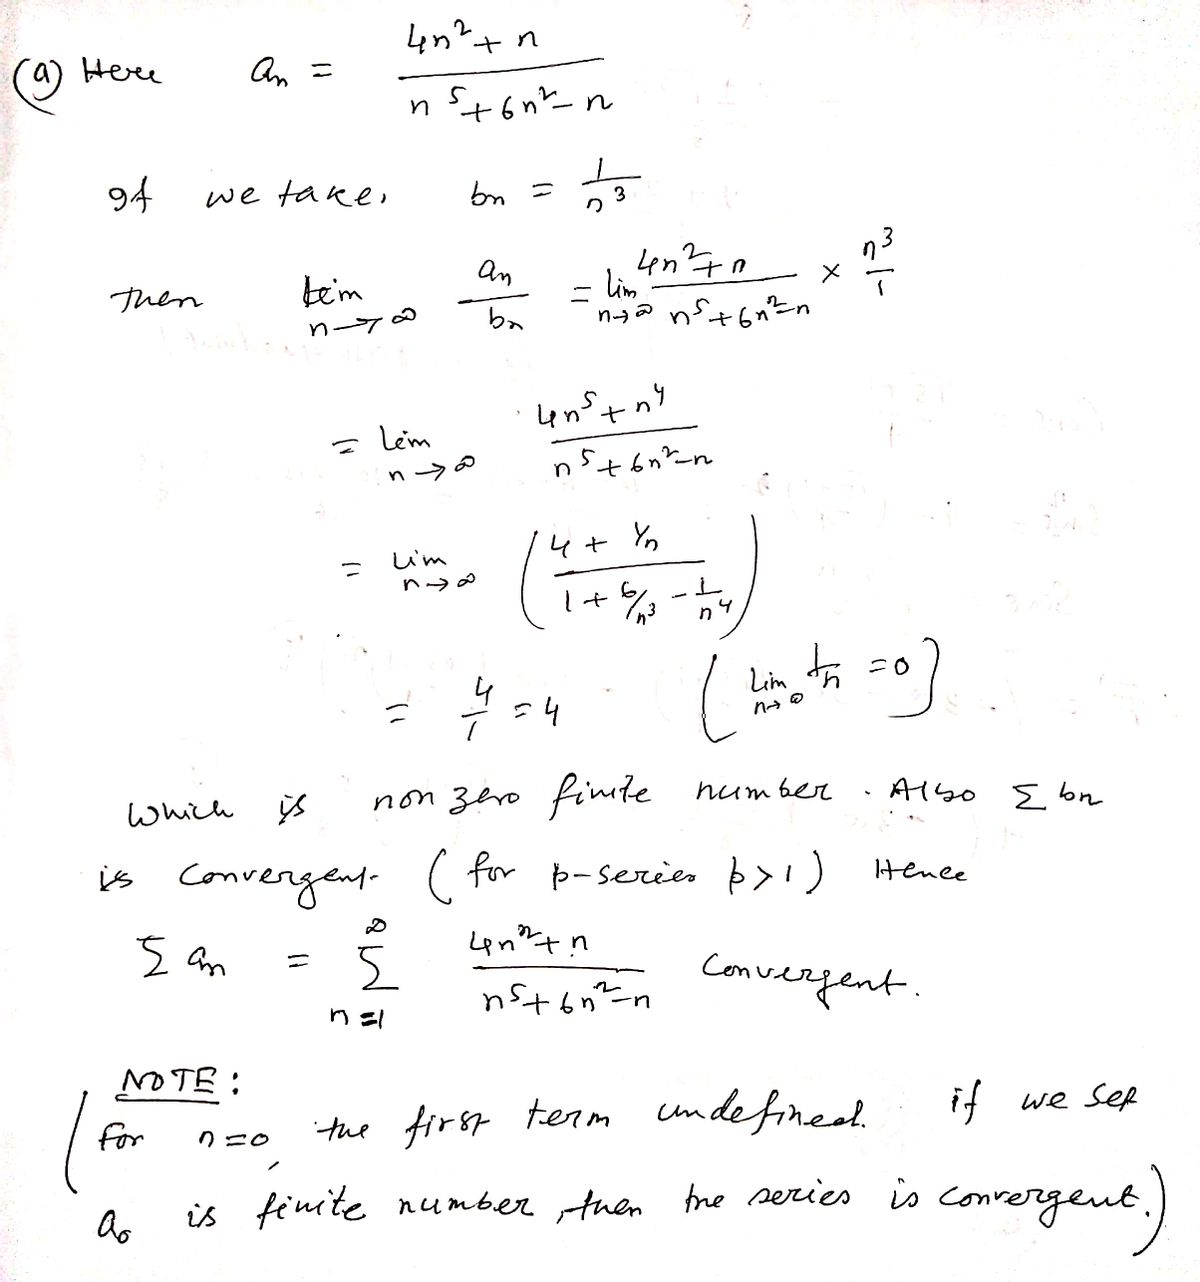 (a) Here an = (4n²+n)/(n⁵+6n²-n)
If we take, bn = 1/n³
Then lim n→∞ an/bn = lim n→∞ (4n²+n)/(n⁵+6n²-n) × n³/1
= lim n→∞ (4n⁵+n⁴)/(n⁵+6n²-n)
= lim n→∞ ((4+1/n)/(1+6/n³-1/n⁴))
= 4/1 = 4 (lim n→∞ 1/n = 0)
Which is non zero finite number. Also Σ bn
is convergent (for p-series p>1) Hence
Σ an = ∞ Σ n=1 (4n²+n)/(n⁵+6n²-n) Convergent.
NOTE:
(for n=0, the first term undefined. if we set
a₀ is finite number, then the series is convergent.)